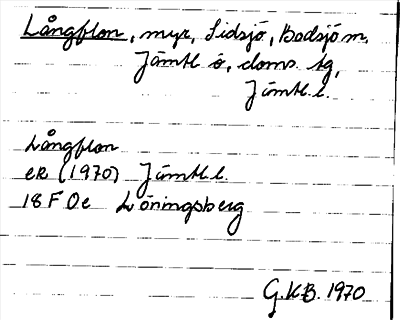 Långflon, myr, Sidsjö, Bodsjö sn.
Jämtl ö. doms. tg,
Jämtl. l.
Långflon
eR (1970) Jämtl l.
18 F 0e Löningsberg
G.K.B. 1970